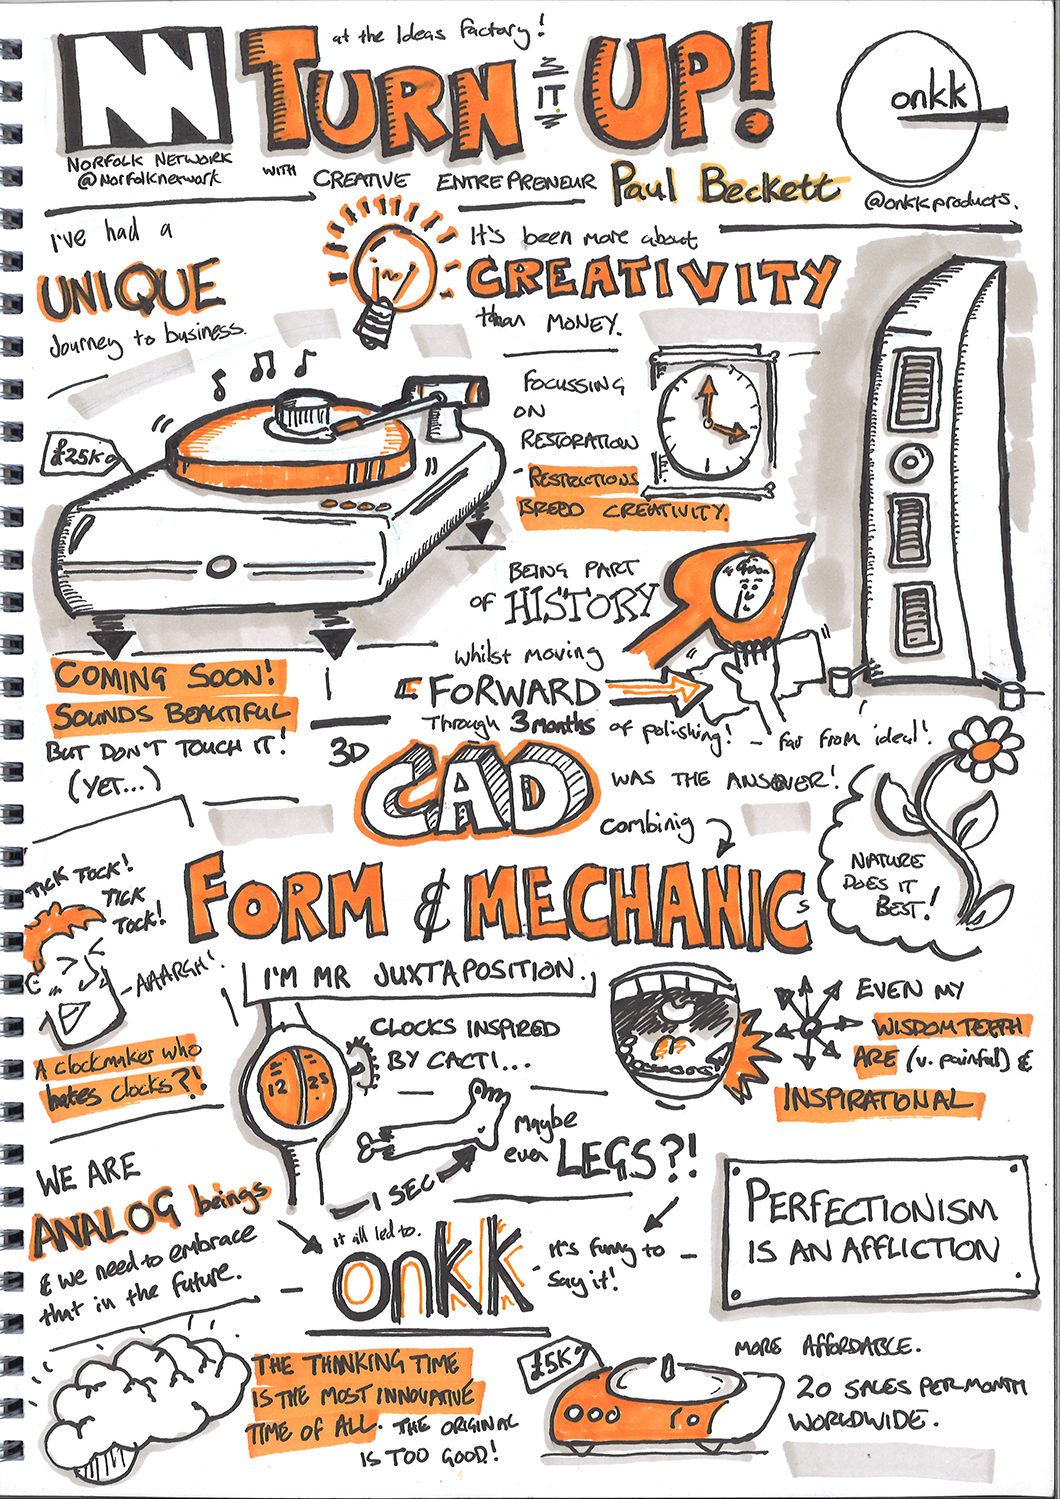 at the Ideas Factory!
TURN IT UP!
NORFOLK NETWORK
@Norfolknetwork
onkk
@onkkproducts.
WITH CREATIVE ENTREPRENEUR Paul Beckett
I've had a
UNIQUE
Journey to business.
It's been more about
CREATIVITY
than MONEY.
£25K
FOCUSSING
ON
RESTORATION
- RESTRICTIONS
BREED CREATIVITY.
BEING PART
OF HISTORY
whilst moving
FORWARD
Through 3 months of polishing! - far from ideal!
COMING SOON!
SOUNDS BEAUTIFUL
BUT DON'T TOUCH IT!
(YET...)
3D
CAD
WAS THE ANSWER!
combinig
FORM & MECHANICs
NATURE
DOES IT
BEST!
TICK TOCK!
TICK
TOCK!
-AAARGH!
A clockmaker who
hates clocks?!
I'M MR JUXTAPOSITION.
12 25
CLOCKS INSPIRED
BY CACTI...
Maybe
even LEGS?!
1 SEC
EVEN MY
WISDOM TEETH
ARE (v. painful) &
INSPIRATIONAL
WE ARE
ANALOG beings
& we need to embrace
that in the future.
it all led to.
onkk
- It's funny to
say it!
PERFECTIONISM
IS AN AFFLICTION
THE THINKING TIME
IS THE MOST INNOVATIVE
TIME OF ALL. THE ORIGINAL
IS TOO GOOD!
£5K
MORE AFFORDABLE.
20 SALES PER MONTH
WORLDWIDE.